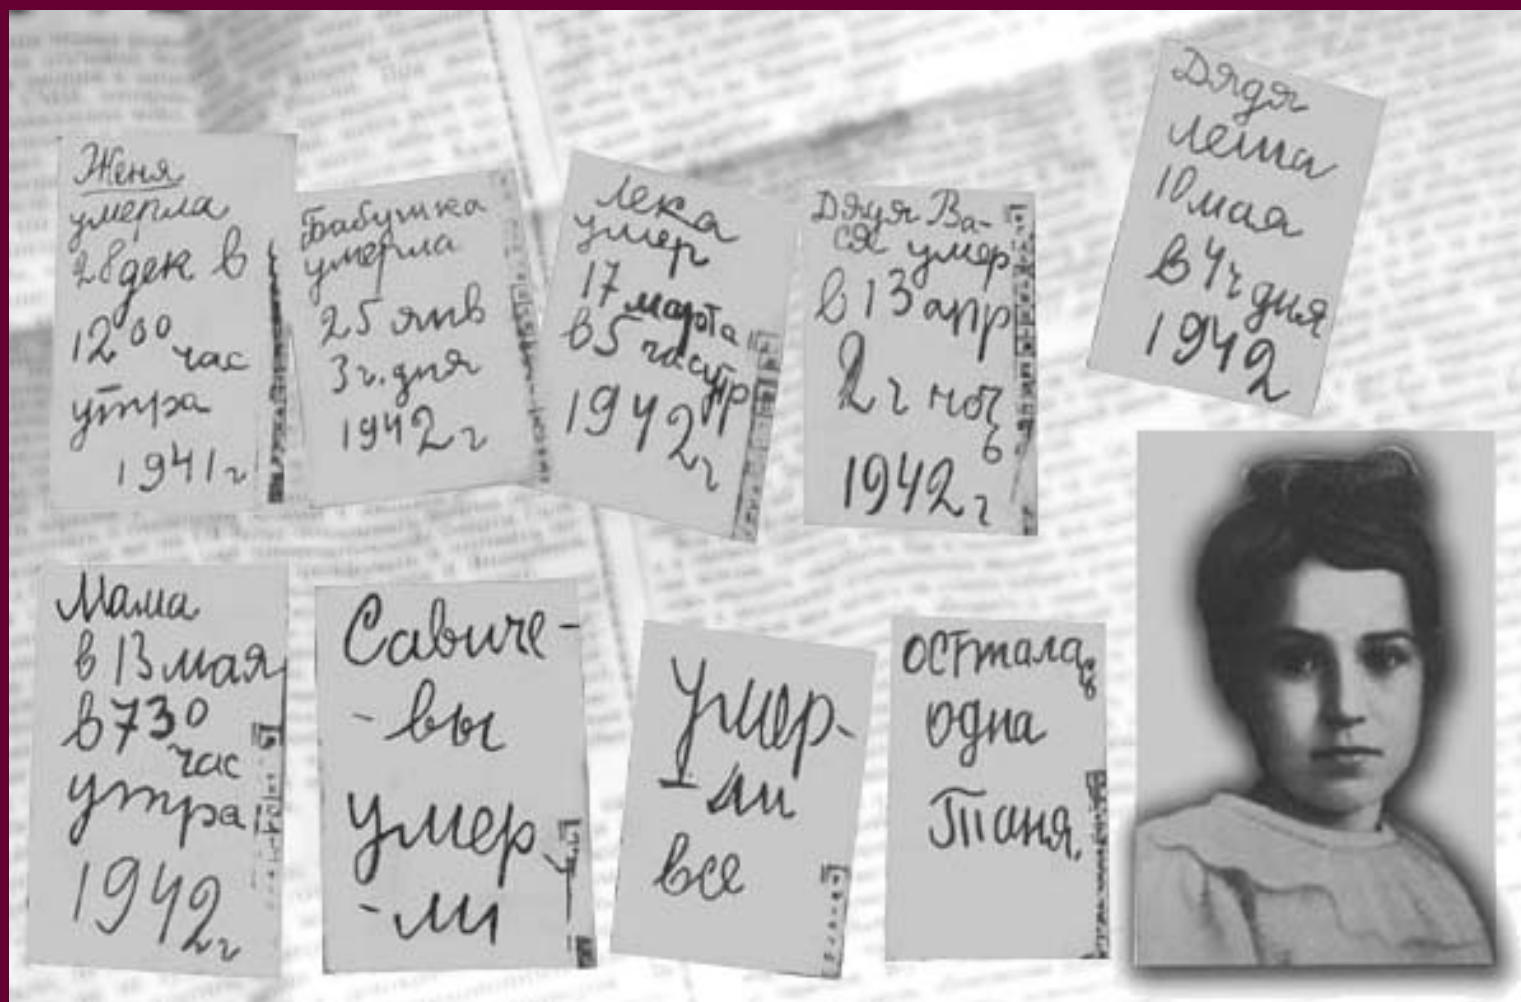 Женя
умерла
28 дек в
12⁰⁰ час
утра
1941 г
Бабушка
умерла
25 янв
3 ч. дня
1942 г
Лека
умер
17 марта
в 5 час утр
1942 г
Дядя Ва-
ся умер
в 13 апр
2 ч ночь
1942 г
Дядя
Леша
10 мая
в 4 ч дня
1942
Мама
в 13 мая
в 7³⁰
час
утра
1942 г
Савиче-
-вы
умер
-ли
Умер-
-ли
все
Осталась
одна
Таня.